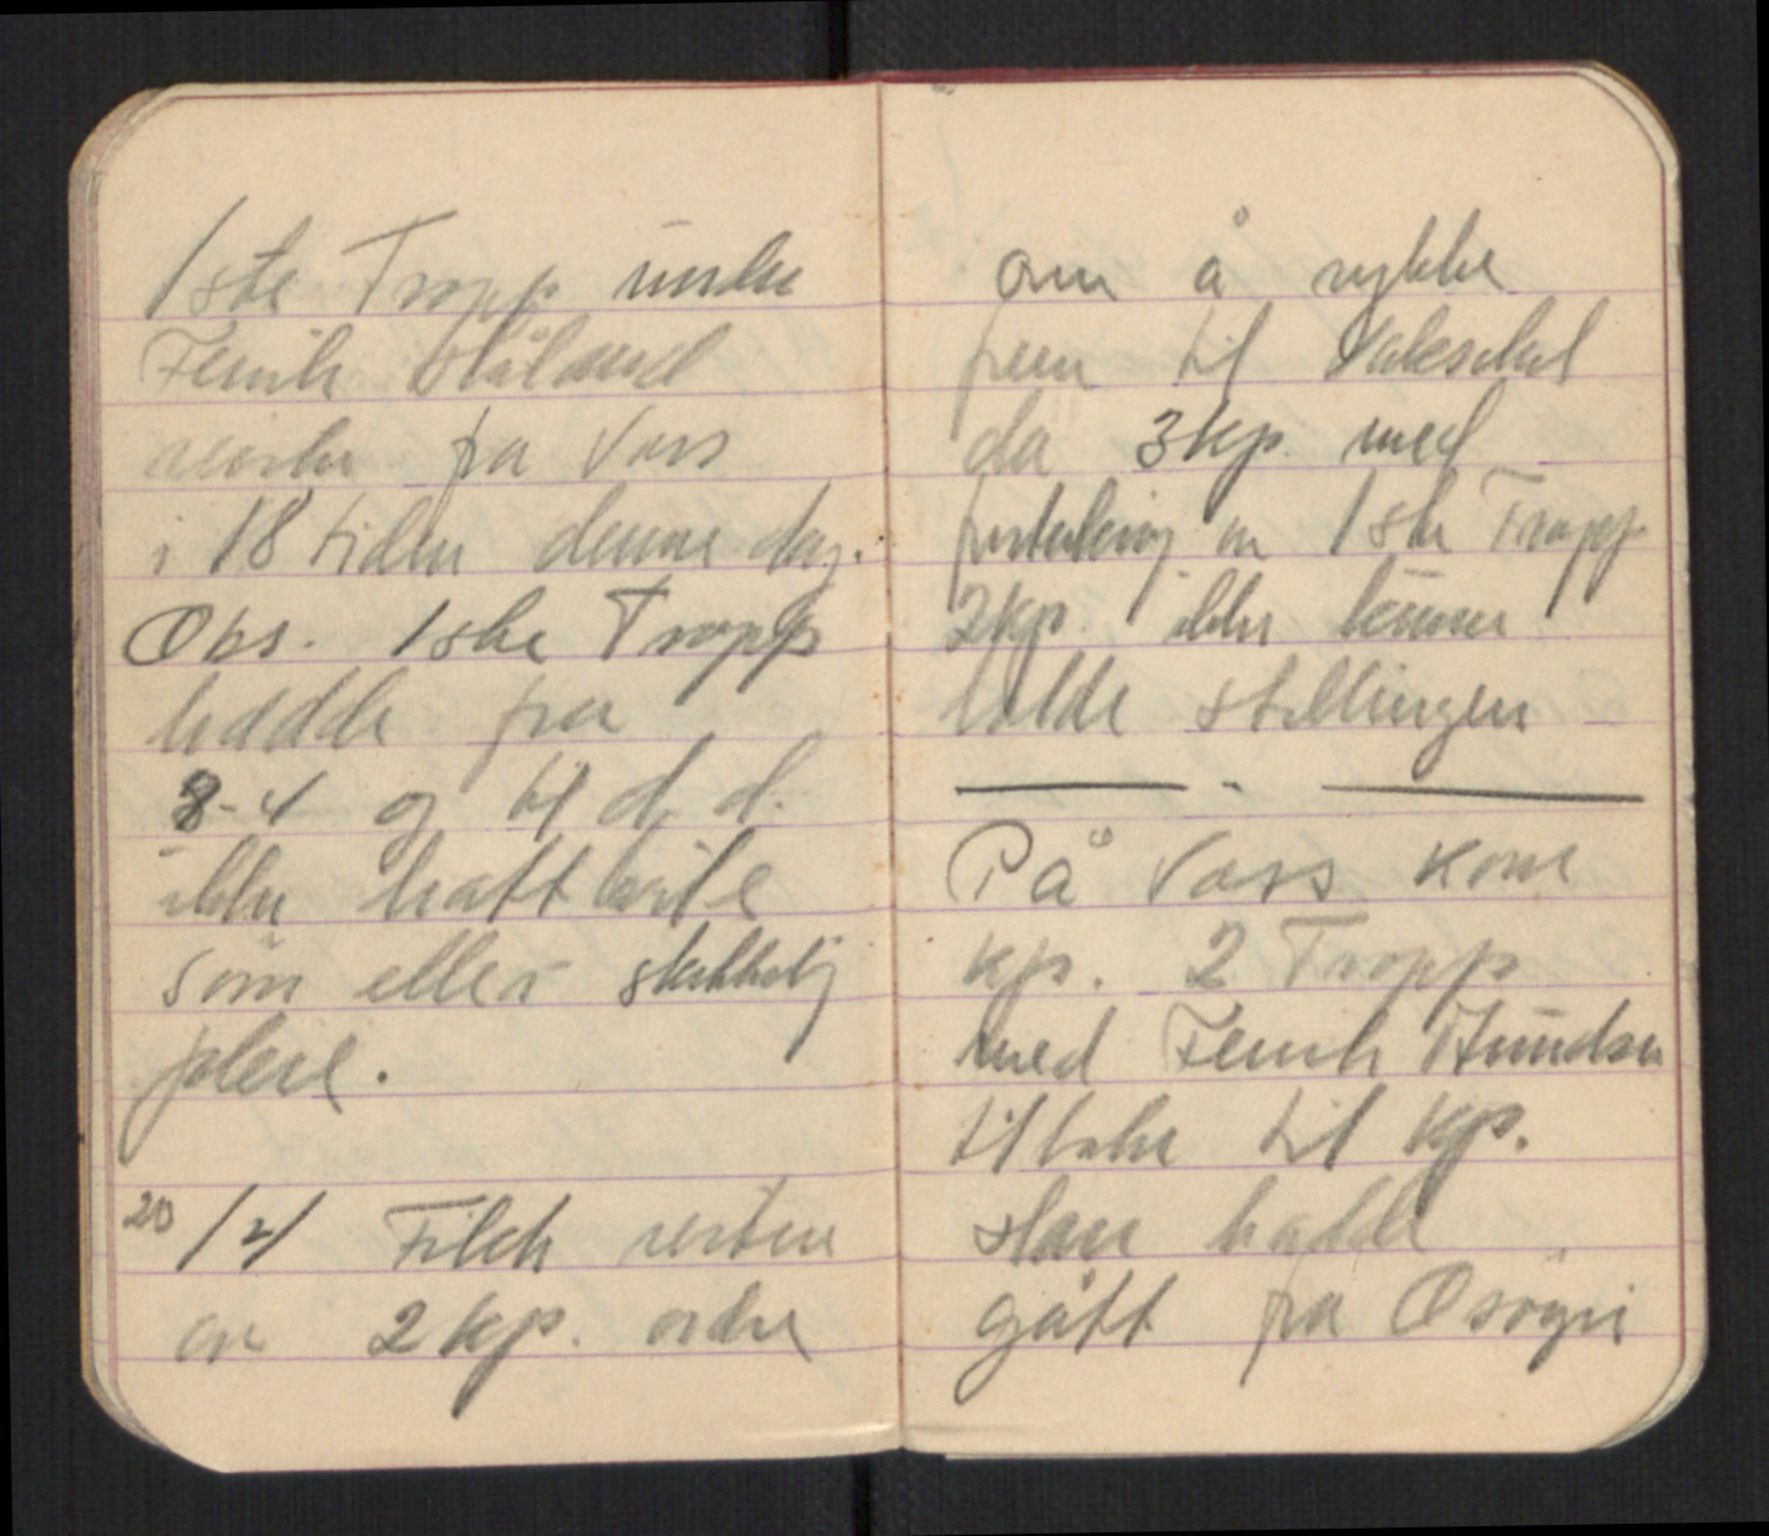 1ste Tropp under
Fenrik Håland
reiste fra Voss
i 18 tiden denne dag.
Obs. 1ste Tropp
hadde fra
8-4 og til d. d.
ikke hatt hvile
søm eller skikkelig
pleie.
20/4 Fikk resten
av 2 kp. ordre
om å rykke
frem til Vaksdal
da 3 kp. med
forsterkning av 1ste Tropp
2 kp. ikke kunne
holde stillingen
På Voss kom
kp. 2 Tropp
med Fenrik
tilbake til kp.
Han hadde
gått fra